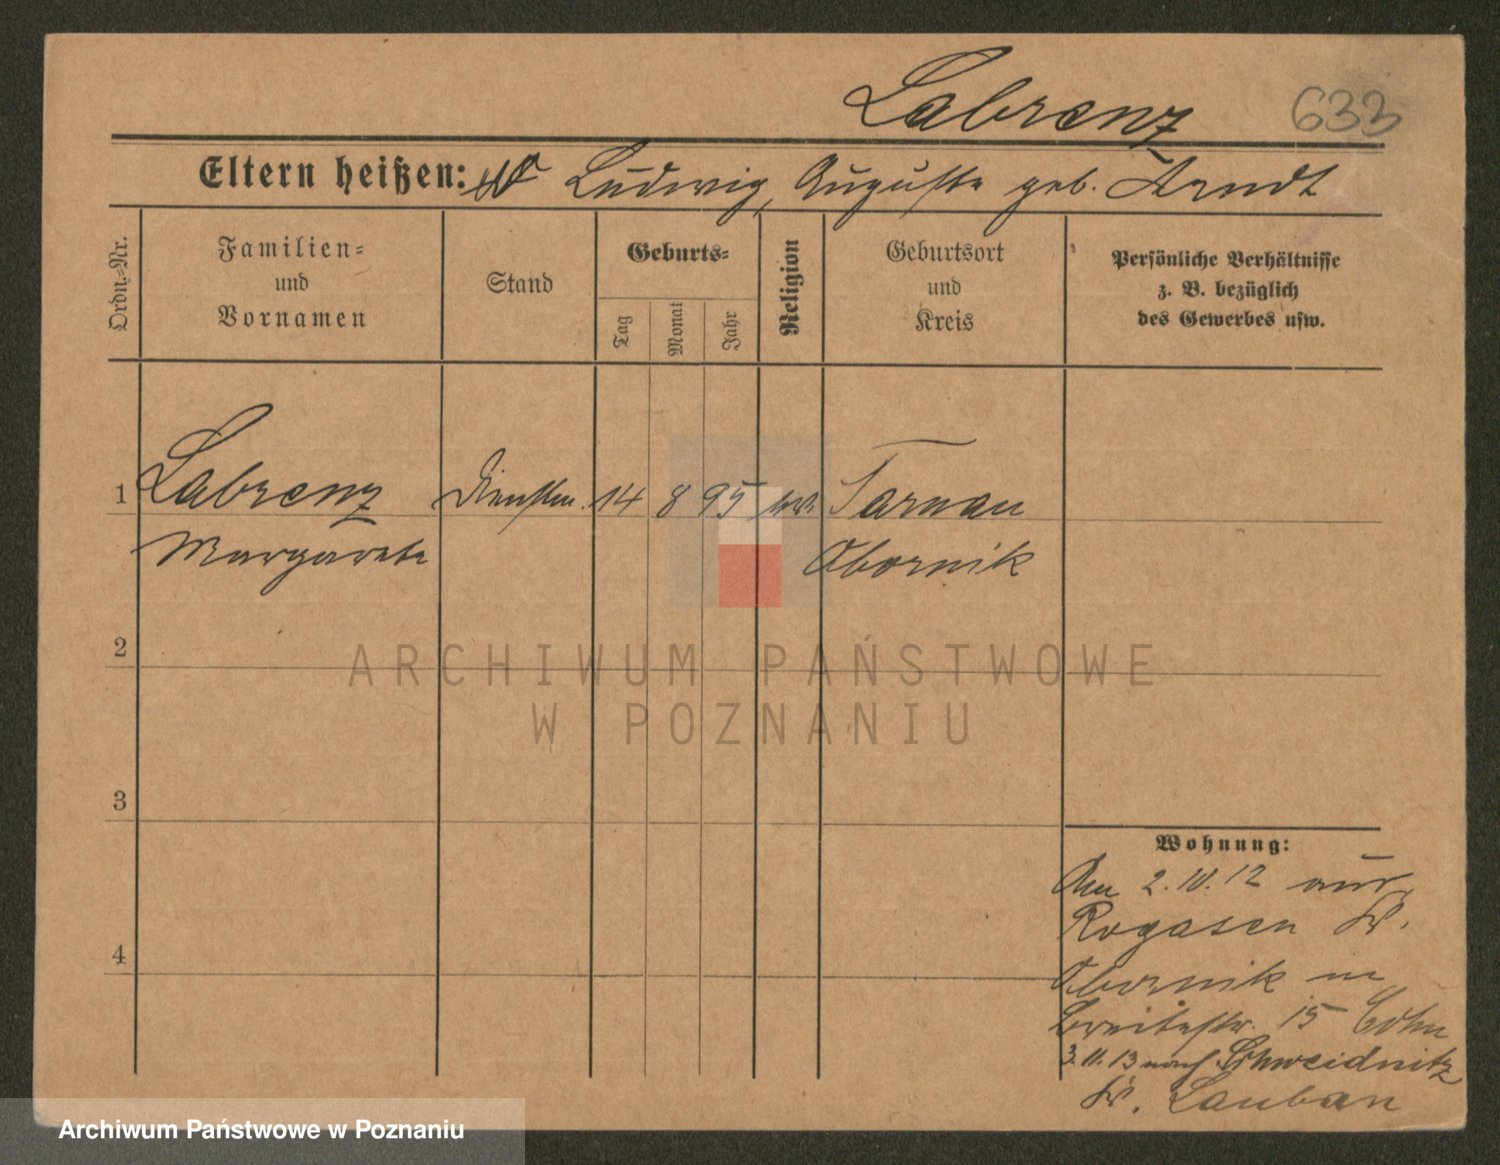 Labrenz 633
Eltern heißen: Ludwig, Auguste geb. Arndt
Ordn.-Nr.
Familien-
und
Vornamen
Stand
Geburts-
Tag
Monat
Jahr
Religion
Geburtsort
und
Kreis
Persönliche Verhältnisse
z. B. bezüglich
des Gewerbes usw.
1 Labrenz Dienstm. 14 8 95 ev. Tarnau
Margarete Obornik
2
3
4
Wohnung:
Am 2.10.12 aus
Rogasen Kr.
Obornik in
Breitestr. 15 Cohn
3.11.13 nach Schweidnitz
Kr. Lauban
ARCHIWUM PAŃSTWOWE
W POZNANIU
Archiwum Państwowe w Poznaniu